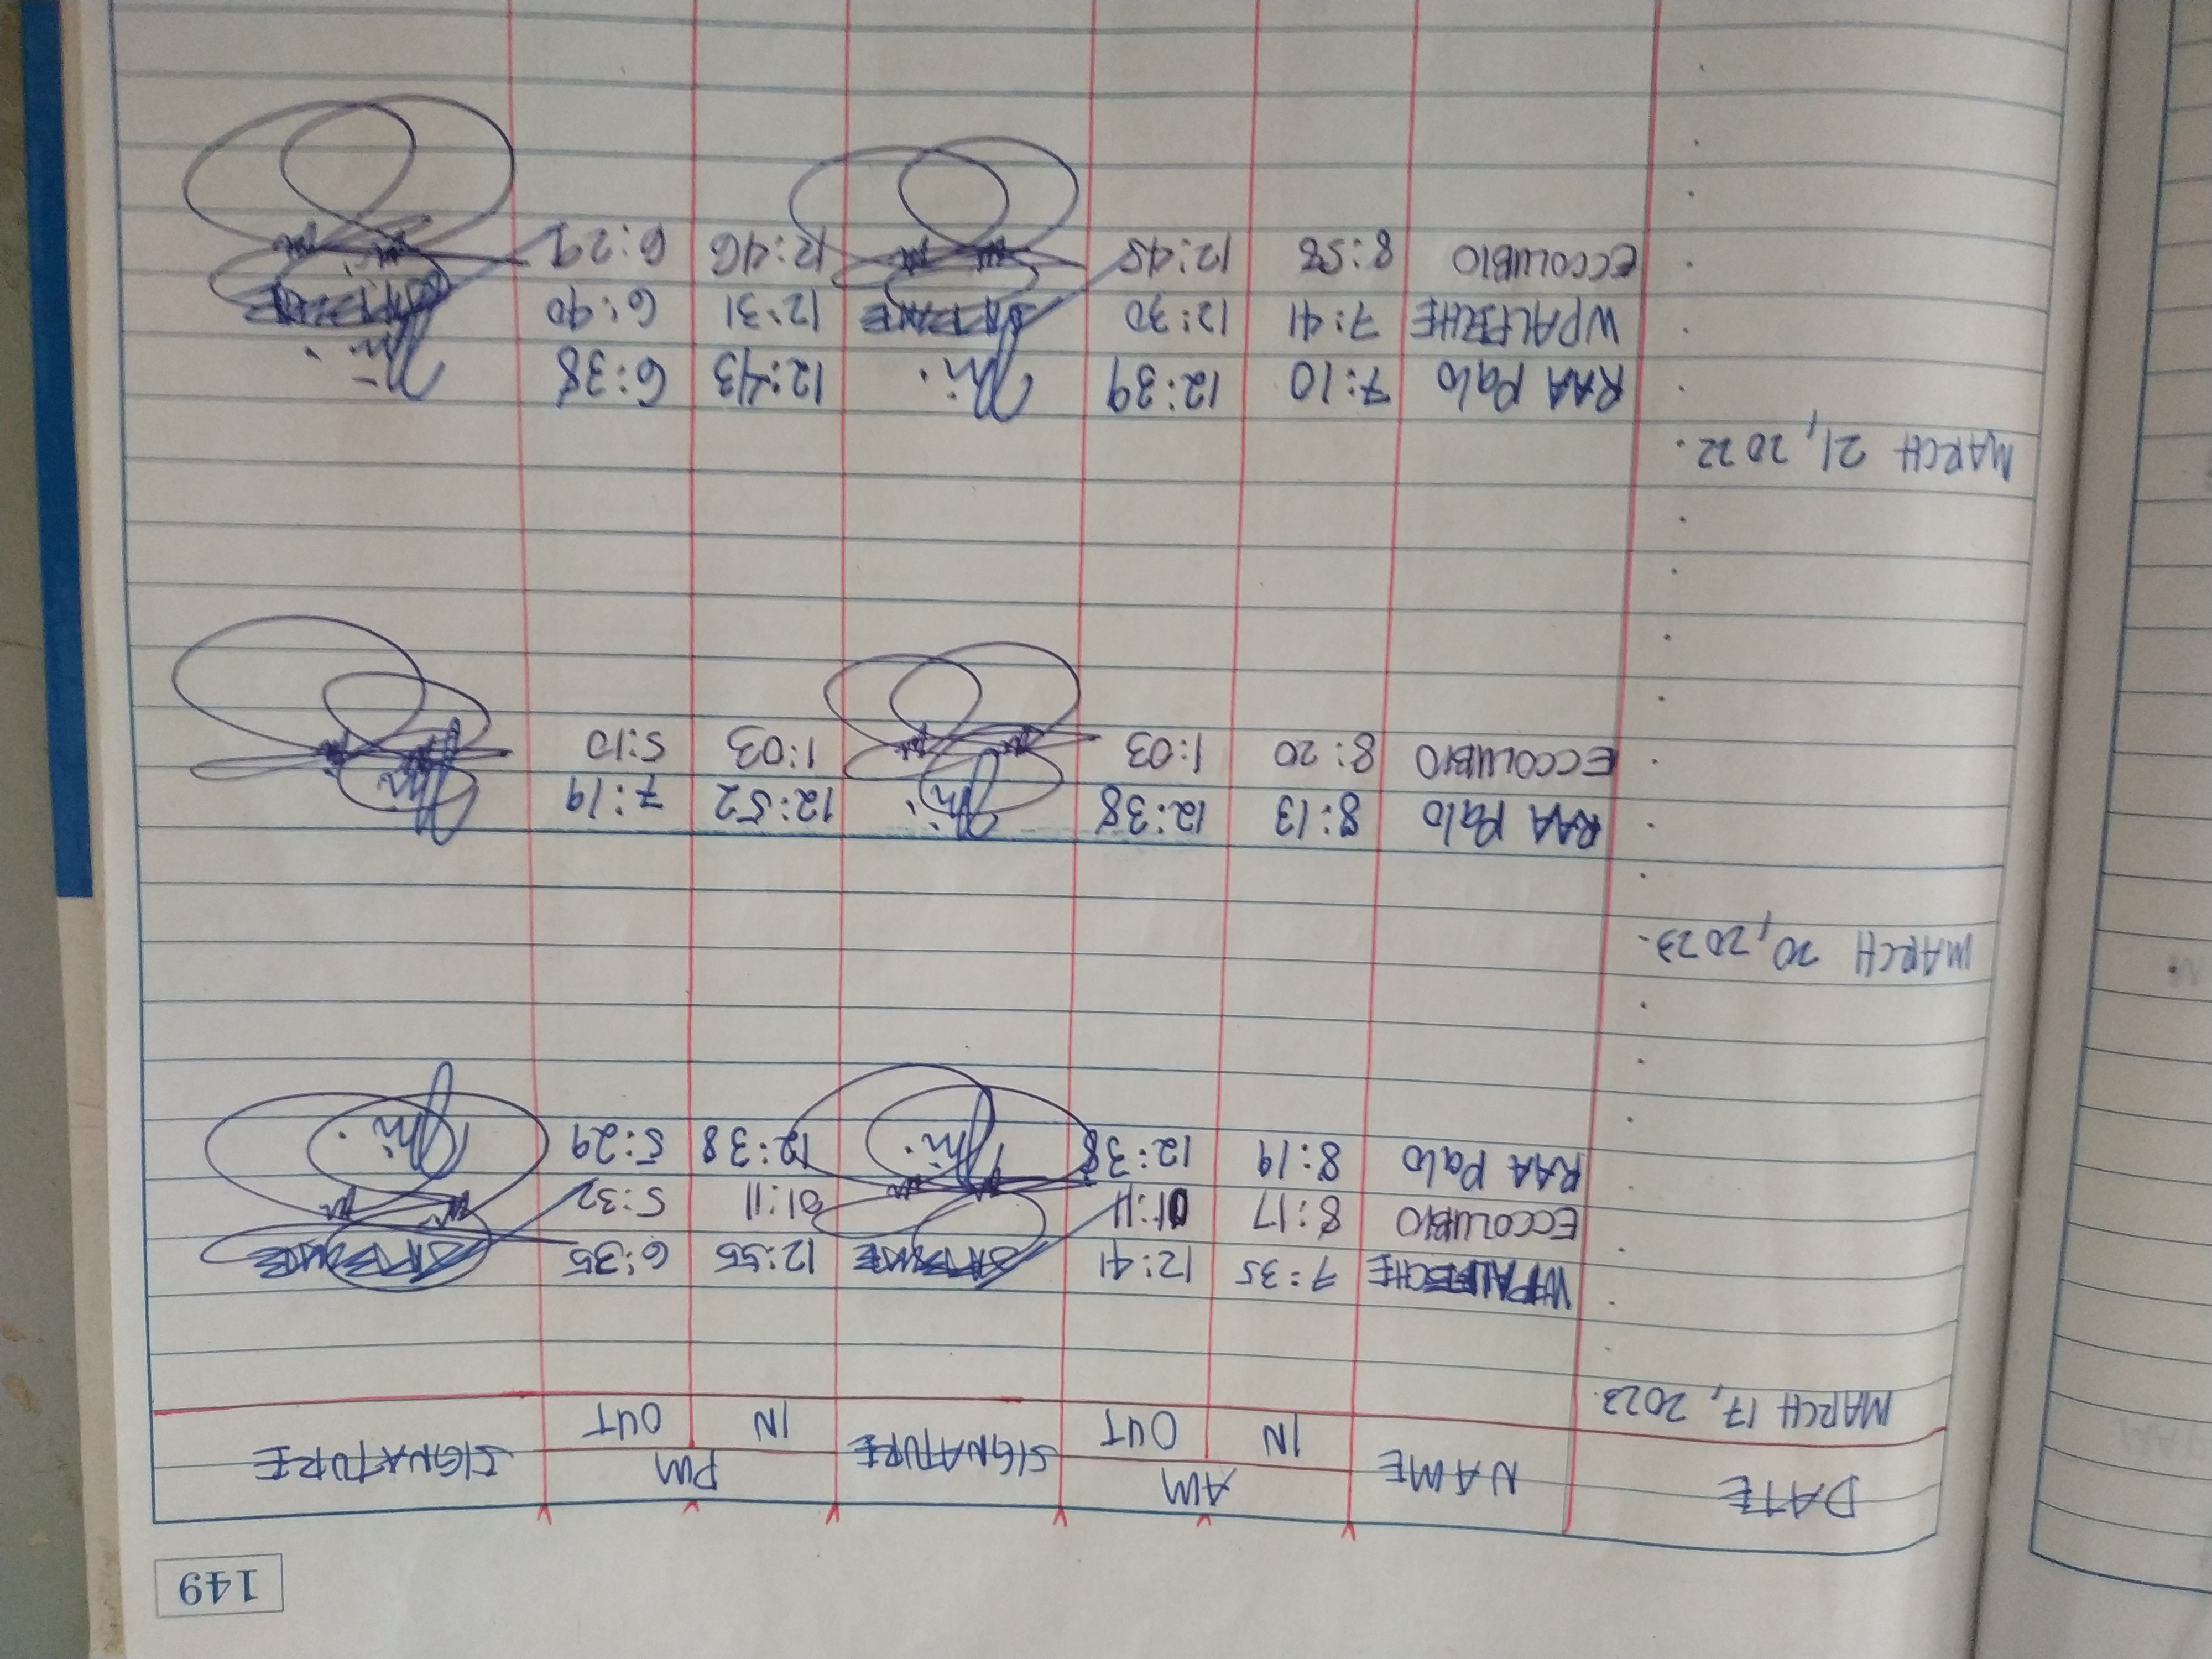 149
DATE NAME AM SIGNATURE PM SIGNATURE
IN OUT IN OUT
MARCH 17, 2023
WPALFSCHE 7:35 12:41 12:55 6:35
ECCOLUBIO 8:17 01:11 01:11 5:32
RAA Palo 8:19 12:38 12:38 5:29
MARCH 20, 2023.
RAA Palo 8:13 12:38 12:52 7:19
ECCOLUBIO 8:20 1:03 1:03 5:10
MARCH 21, 2022.
RAA Palo 7:10 12:39 12:43 6:38
WPALFSCHE 7:41 12:30 12:31 6:40
ECCOLUBIO 8:58 12:45 12:46 6:29